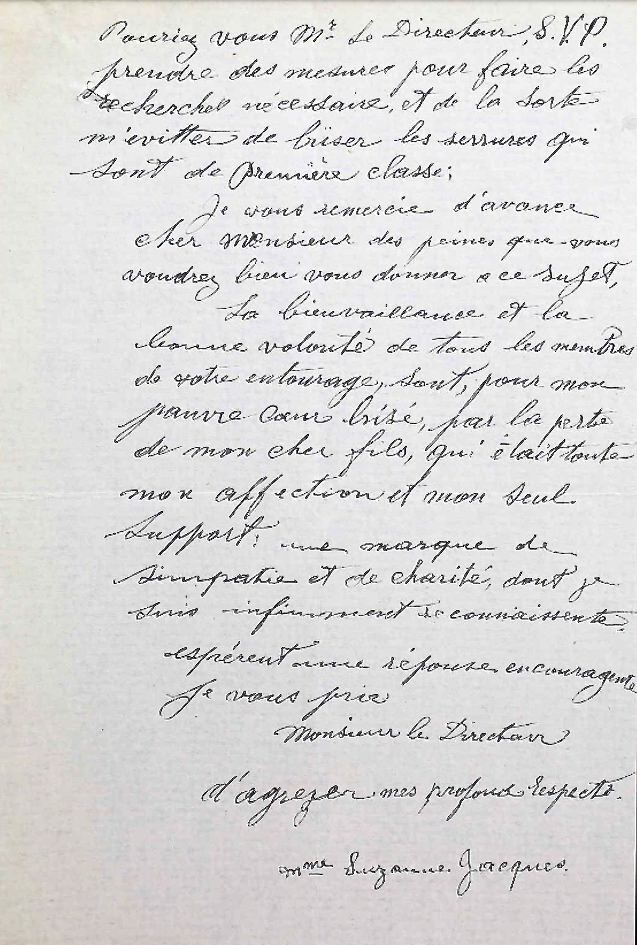 Pouriez vous Mr Le Directeur, S.V.P.
prendre des mesures pour faire les
recherches nécessaire, et de la sorte
m'evitter de briser les serrures qui
sont de première classe;
Je vous remercie d'avance
cher Monsieur des peines que vous
voudrez bien vous donner a ce sujet,
La bienvaillance et la
bonne volonté de tous les membres
de votre entourage, sont, pour mon
pauvre cœur brisé, par la perte
de mon cher fils, qui était toute
mon affection et mon seul
support: une marque de
simpatie et de charité, dont je
suis infiniment reconnaissente.
espérent une réponse encouragente
je vous prie
Monsieur le Directeur
d'agrezer mes profond respects.
mme Suzanne Jacques.